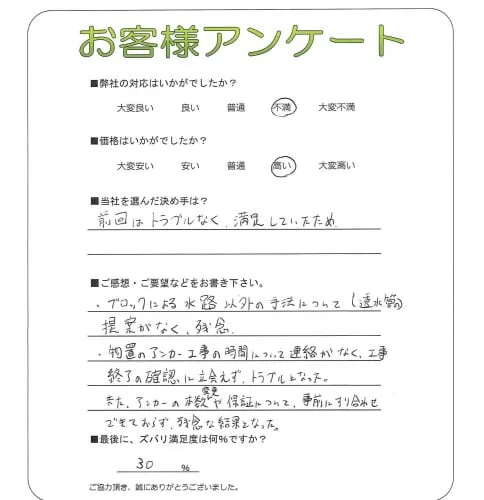 お客様アンケート
■弊社の対応はいかがでしたか？
大変良い 良い 普通 不満 大変不満
■価格はいかがでしたか？
大変安い 安い 普通 高い 大変高い
■当社を選んだ決め手は？
前回はトラブルなく、満足していたため
■ご感想・ご要望などをお書き下さい。
・ブロックによる水路以外の手法について（透水管等）
提案がなく、残念。
・物置のアンカー工事の時間について連絡がなく、工事
終了の確認に立会えず、トラブルとなった。
また、アンカーの本数変更や保証について、事前にすり合わせ
できておらず、残念な結果となった。
■最後に、ズバリ満足度は何％ですか？
30 ％
ご協力頂き、誠にありがとうございました。